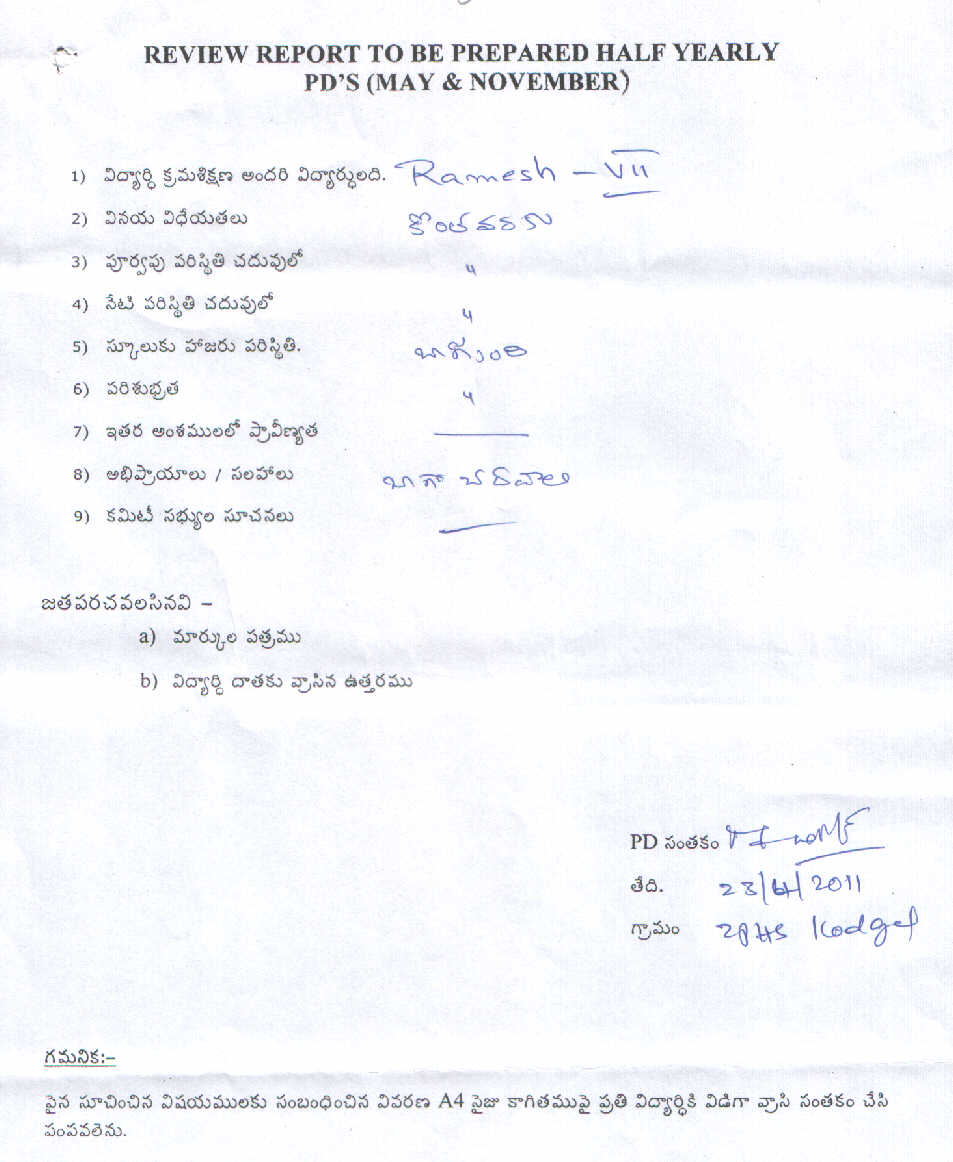 REVIEW REPORT TO BE PREPARED HALF YEARLY
PD'S (MAY & NOVEMBER)
1) విద్యార్ధి క్రమశిక్షణ అందరి విద్యార్ధులది. Ramesh - VII
2) వినయ విధేయతలు కొంతవరకు
3) పూర్వపు పరిస్థితి చదువులో "
4) నేటి పరిస్థితి చదువులో "
5) స్కూలుకు హాజరు పరిస్థితి. బాగుంది
6) పరిశుభ్రత "
7) ఇతర అంశములలో ప్రావీణ్యత —
8) అభిప్రాయాలు / సలహాలు బాగా చదవాలి
9) కమిటీ సభ్యుల సూచనలు —
జతపరచవలసినవి –
a) మార్కుల పత్రము
b) విద్యార్ధి దాతకు వ్రాసిన ఉత్తరము
PD సంతకం
తేది. 23/4/2011
గ్రామం ZPHS Kodgal
గమనిక:–
పైన సూచించిన విషయములకు సంబంధించిన వివరణ A4 సైజు కాగితముపై ప్రతి విద్యార్ధికి విడిగా వ్రాసి సంతకం చేసి
పంపవలెను.